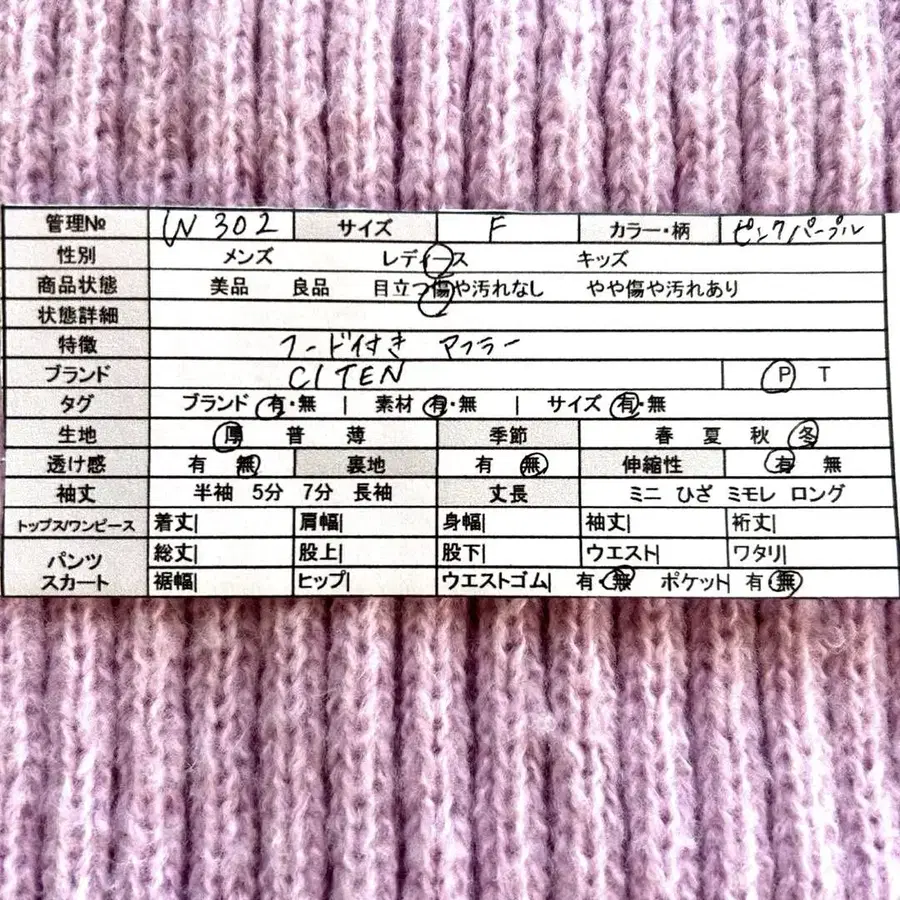 管理№ W 302 サイズ F カラー・柄 ピンクパープル
性別 メンズ レディース キッズ
商品状態 美品 良品 目立つ傷や汚れなし やや傷や汚れあり
状態詳細
特徴 フード付き マフラー
ブランド CITEN P T
タグ ブランド 有・無 | 素材 有・無 | サイズ 有・無
生地 厚 普 薄 季節 春 夏 秋 冬
透け感 有 無 裏地 有 無 伸縮性 有 無
袖丈 半袖 5分 7分 長袖 丈長 ミニ ひざ ミモレ ロング
トップス/ワンピース 着丈| 肩幅| 身幅| 袖丈| 裄丈|
パンツ 総丈| 股上| 股下| ウエスト| ワタリ|
スカート 裾幅| ヒップ| ウエストゴム| 有・無 ポケット| 有・無